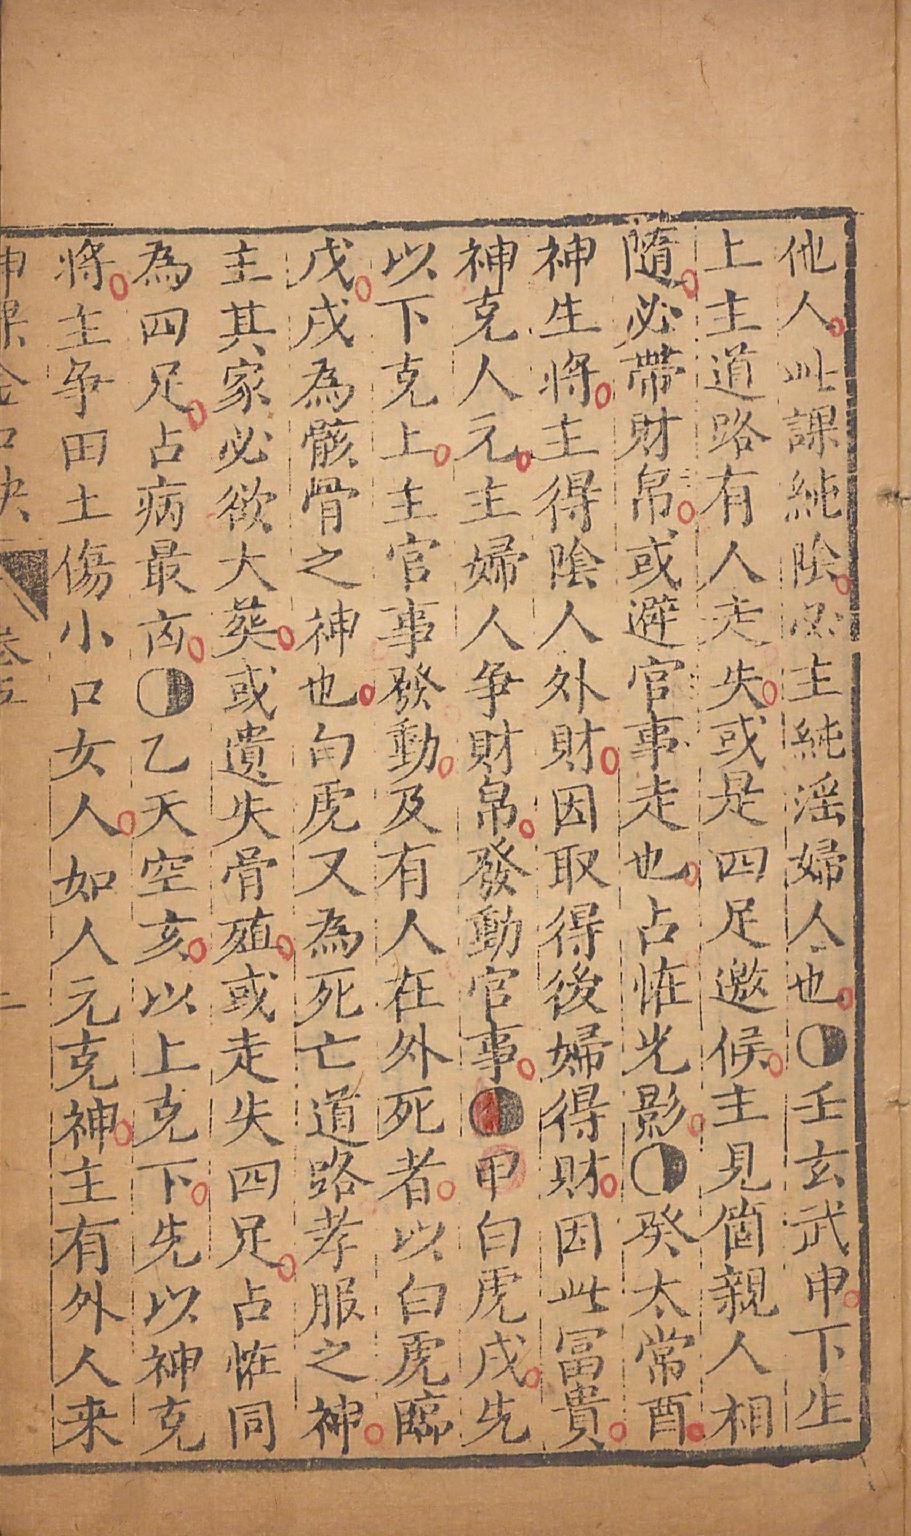 他人此課純陰必主純淫婦人也壬玄武申下生
上主道路有人走失或是四足邀候主見箇親人相
隨必帶財帛或避官事走也占恠光影癸太常酉
神生將主得陰人外財因取得後婦得財因此冨貴
神克人元主婦人争財帛發動官事甲白虎戌先
以下克上主官事發動及有人在外死者以白虎臨
戊戌為骸骨之神也白虎又為死亡道路孝服之神
主其家必欲大葬或遺失骨殖或走失四足占恠同
為四足占病最㐫乙天空亥以上克下先以神克
將主争田土傷小口女人如人元克神主有外人来
神課金口訣
卷五